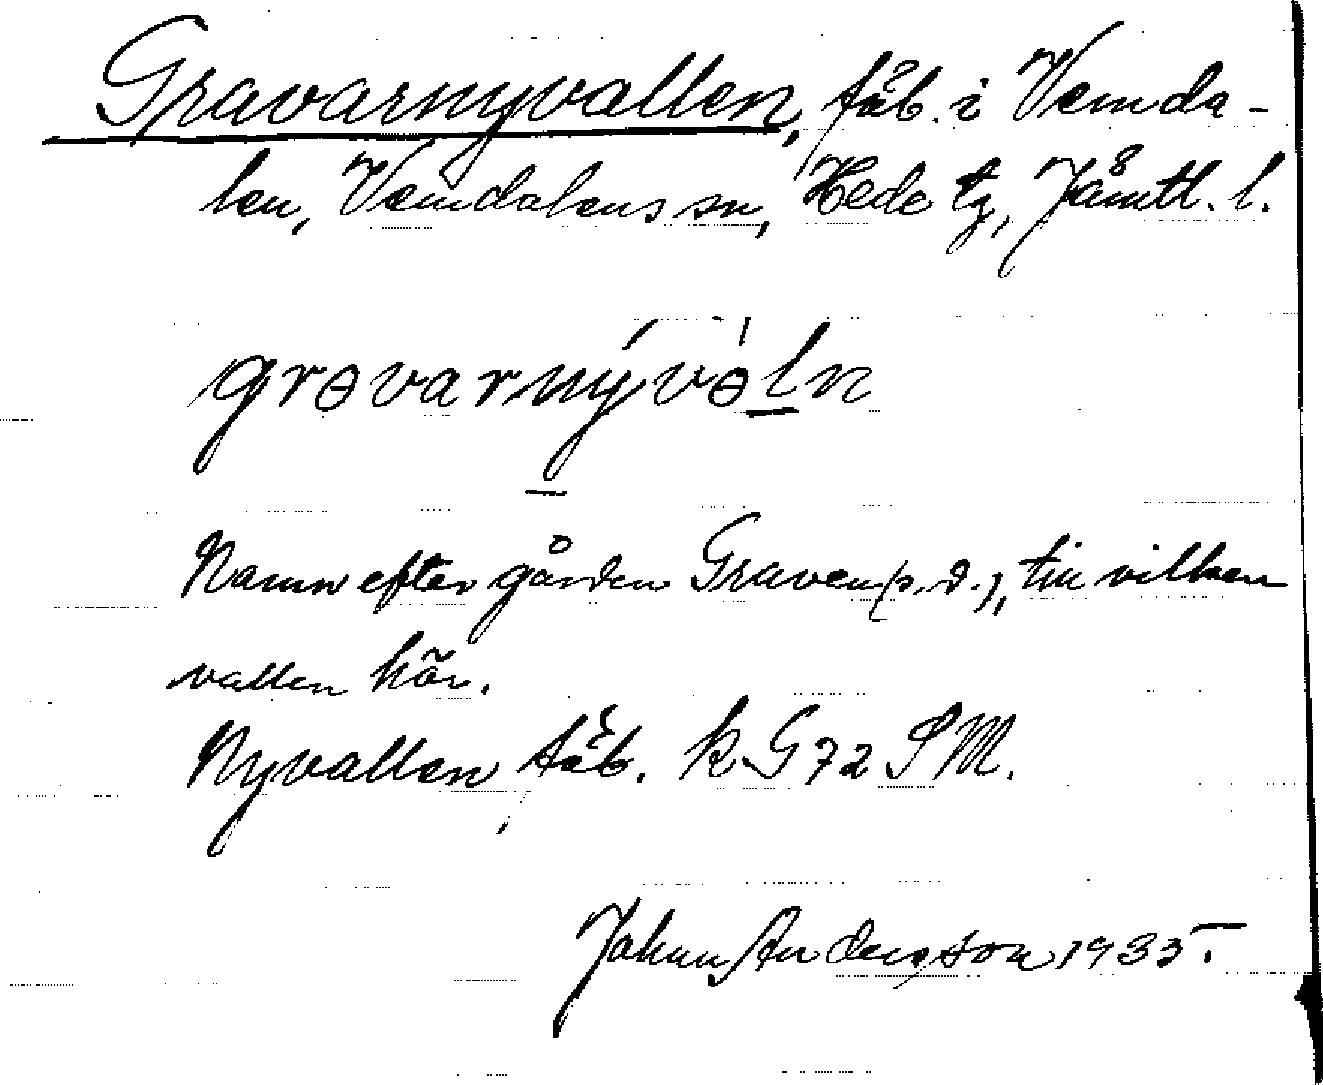 Gravarnyvallen, fäb. i Vemda-
len, Vemdalens sn, Hede tg, Jämtl. l.
grɵvarnývɵ̀ln
Namn efter gården Graven (s. d.), till vilken
vallen hör.
Nyvallen fäb. k. G 72 SM.
Johan Andersson 1935.